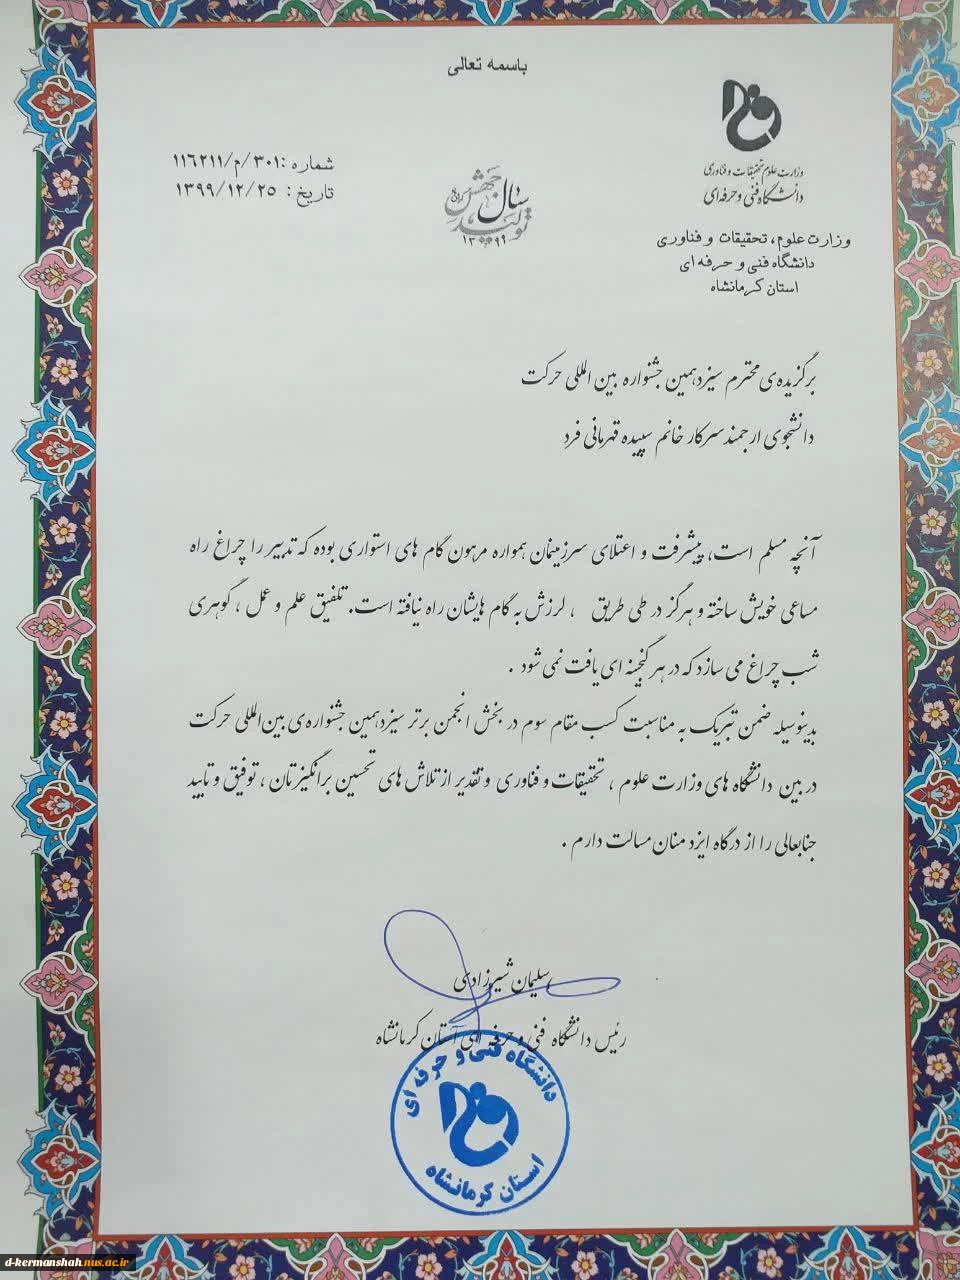 باسمه تعالی
وزارت علوم تحقیقات و فناوری
دانشگاه فنی و حرفه‌ای
وزارت علوم، تحقیقات و فناوری
دانشگاه فنی و حرفه ای
استان کرمانشاه
سال جهش تولید
۱۳۹۹
شماره :۳۰۱/م/۱۱۶۲۱۱
تاریخ : ۱۳۹۹/۱۲/۲۵
برگزیده‌ی محترم سیزدهمین جشنواره بین المللی حرکت
دانشجوی ارجمند سرکار خانم سپیده قهرمانی فرد
آنچه مسلم است، پیشرفت و اعتلای سرزمینمان همواره مرهون گام های استواری بوده که تدبیر را چراغ راه
مساعی خویش ساخته و هرگز در طی طریق ، لرزش به گام هایشان راه نیافته است. تلفیق علم و عمل ، گوهری
شب چراغ می سازد که در هر گنجینه ای یافت نمی شود .
بدینوسیله ضمن تبریک به مناسبت کسب مقام سوم در بخش انجمن برتر سیزدهمین جشنواره‌ی بین‌المللی حرکت
در بین دانشگاه های وزارت علوم ، تحقیقات و فناوری و تقدیر از تلاش های تحسین برانگیزتان ، توفیق و تایید
جنابعالی را از درگاه ایزد منان مسالت دارم .
سلیمان شیرزادی
رئیس دانشگاه فنی و حرفه ای استان کرمانشاه
دانشگاه فنی و حرفه ای
استان کرمانشاه
d-kermanshah.nus.ac.ir